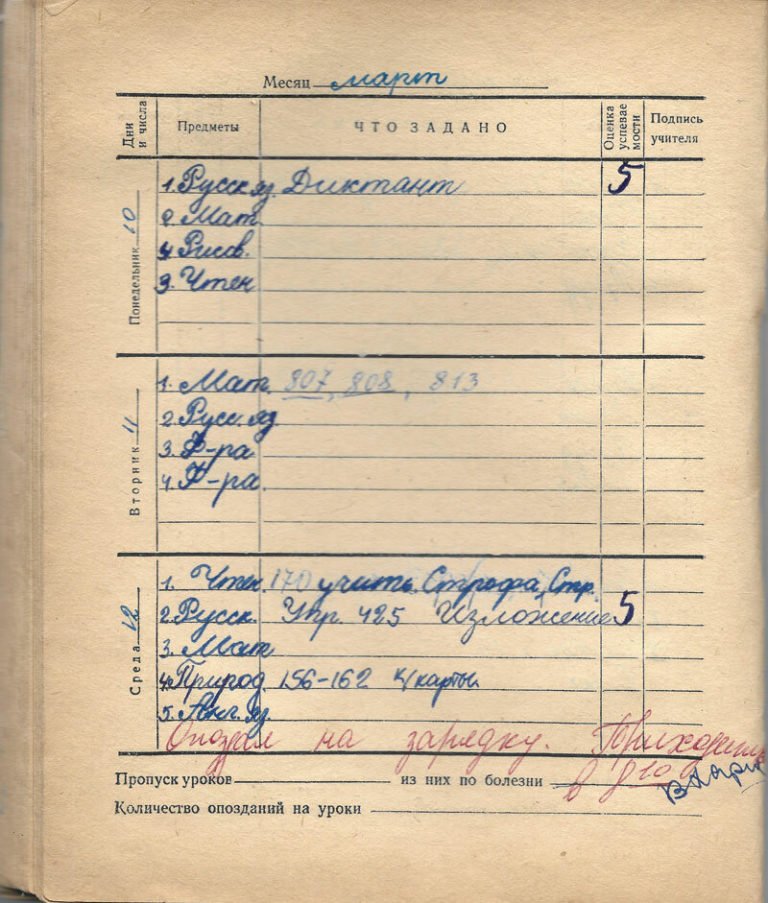 Месяц март
Дни и числа Предметы ЧТО ЗАДАНО Оценка успевае мости Подпись учителя
Понедельник 10
1. Русск. яз. Диктант 5
2. Мат.
4. Рисов.
3. Чтен
Вторник 11
1. Мат. 807, 808, 813
2. Русс. яз
3. Ф-ра
4. Ф-ра.
Среда 12
1. Чтен. 170 учить. Строфа, Стр.
2. Русск. Упр. 425 Изложение 5
3. Мат
4. Природ. 156-162 к/карты.
5. Анг. яз.
Опоздал на зарядку. Приходить
в 8 10
Пропуск уроков из них по болезни
Количество опозданий на уроки